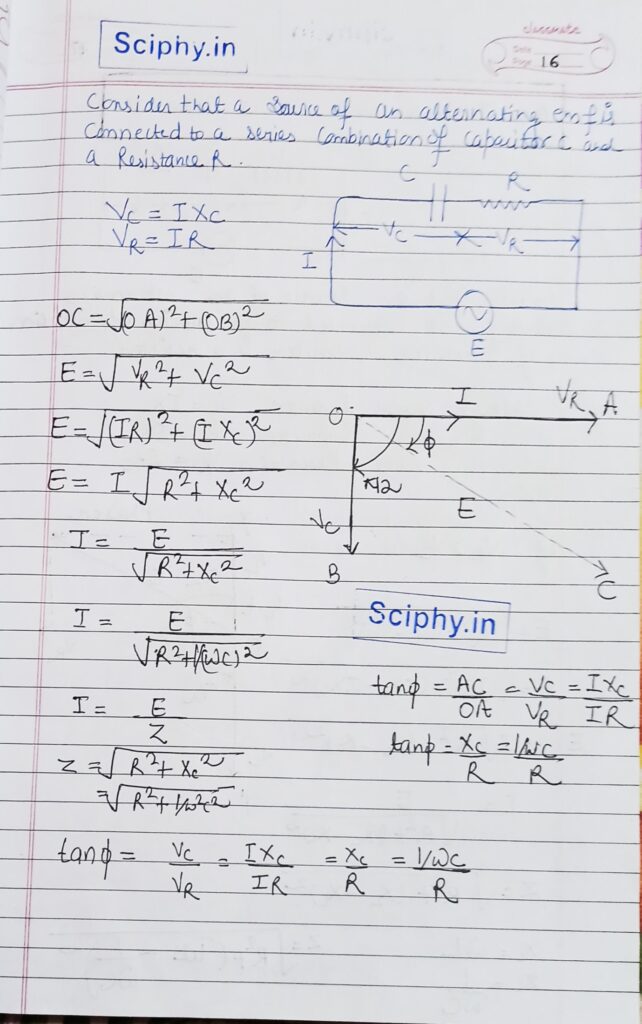 Sciphy.in
classmate
Date
Page 16
Consider that a source of an alternating emf is
Connected to a series Combination of Capacitor C and
a Resistance R.
V_C = I X_C
V_R = IR
C R
V_C V_R
I
E
OC = √(OA)² + (OB)²
E = √V_R² + V_C²
E = √(IR)² + (I X_C)²
E = I √R² + X_C²
I = E / √R² + X_C²
I = E / √R² + 1/(ωC)²
I = E / Z
Z = √R² + X_C²
= √R² + 1/ω²C²
O I V_R A
ϕ
π/2
V_C E
B C
Sciphy.in
tanϕ = AC/OA = V_C/V_R = I X_C/IR
tanϕ = X_C/R = 1/ωC/R
tanϕ = V_C/V_R = I X_C/IR = X_C/R = 1/ωC/R